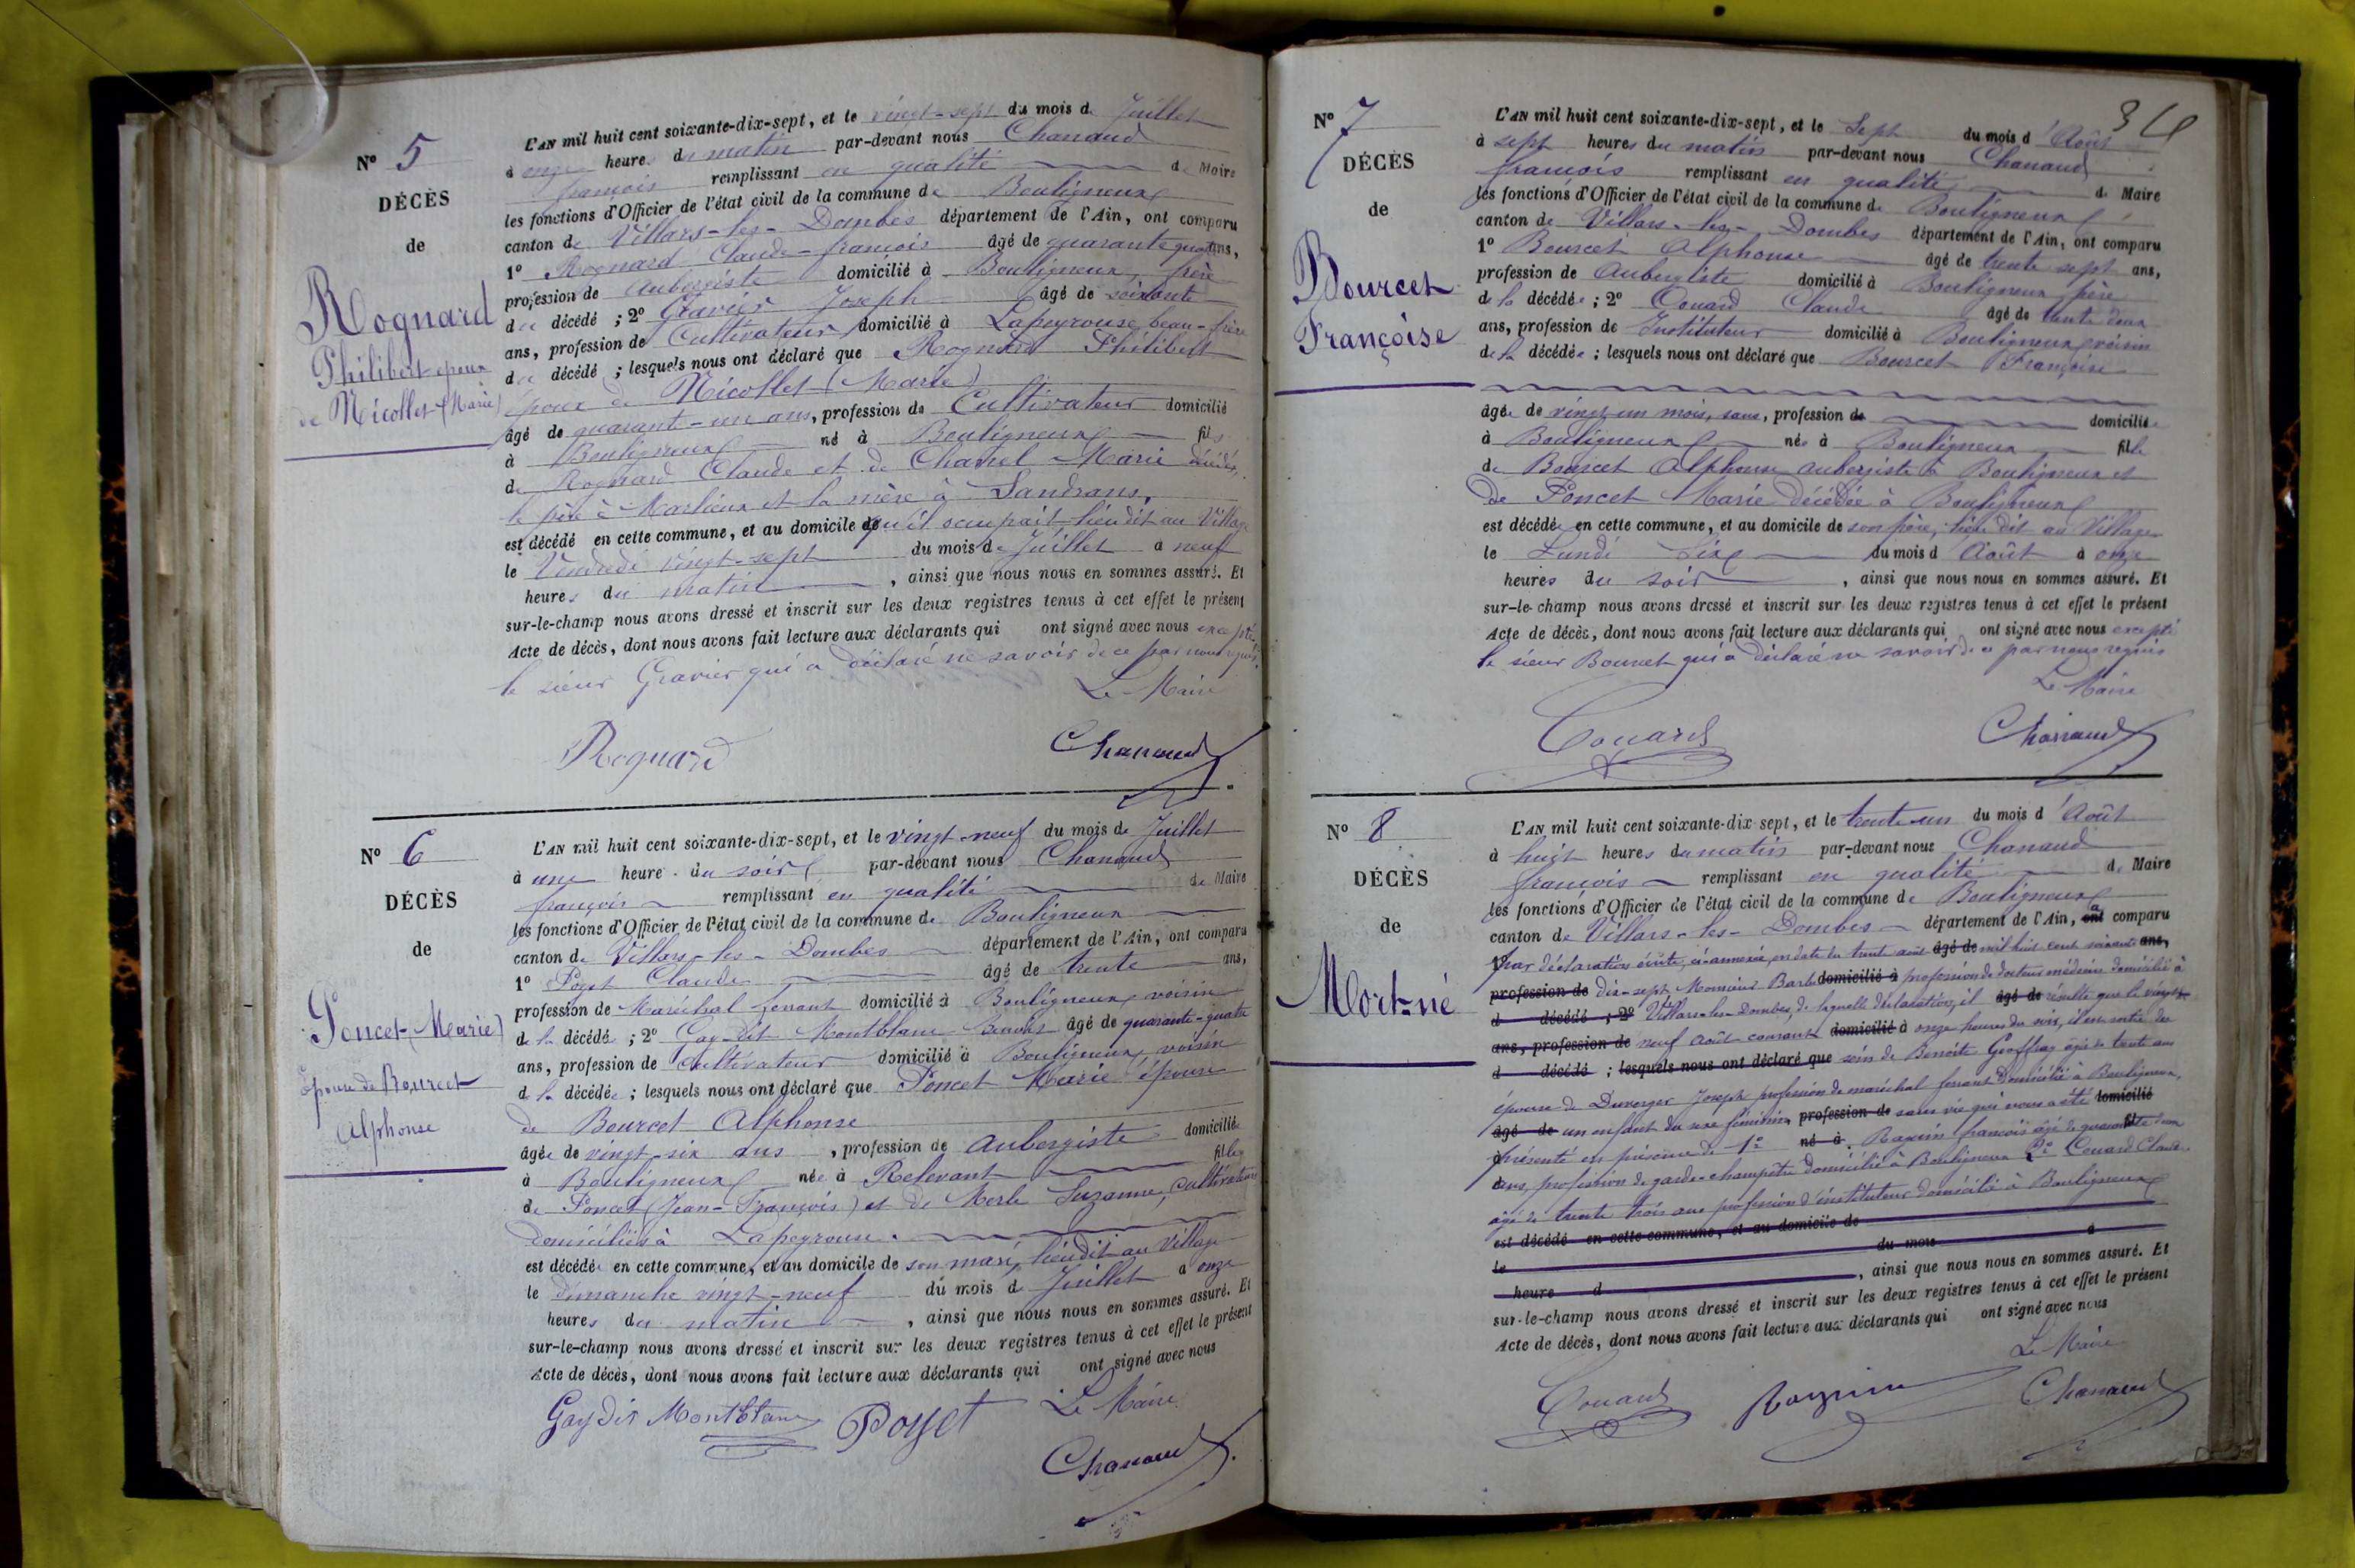 N° 5
DÉCÈS
de
Rognard
Philibert époux
de Nicollet (Marie)
L'AN mil huit cent soixante-dix-sept, et le vingt-sept du mois de Juillet
à onze heures du matin par-devant nous Chanaud
françois remplissant en qualité de Maire
les fonctions d'Officier de l'état civil de la commune de Bouligneux
canton de Villars-les-Dombes département de l'Ain, ont comparu
1° Rognard Claude-françois âgé de quarante quatre ans,
profession de aubergiste domicilié à Bouligneux, frère
du décédé ; 2° Gravier Joseph âgé de soixante
ans, profession de Cultivateur domicilié à Lapeyrouse, beau-frère
du décédé ; lesquels nous ont déclaré que Rognard Philibert
époux de Nicollet (Marie)
âgé de quarant-un ans, profession de Cultivateur domicilié
à Bouligneux né à Bouligneux fils
de Rognard Claude et de Chanel Marie décédés,
le père à Marlieux et la mère à Sandrans,
est décédé en cette commune, et au domicile qu'il occupait, lieu dit au Village
le Vendredi vingt-sept du mois de Juillet à neuf
heures du matin, ainsi que nous nous en sommes assuré. Et
sur-le-champ nous avons dressé et inscrit sur les deux registres tenus à cet effet le présent
Acte de décès, dont nous avons fait lecture aux déclarants qui ont signé avec nous excepté
le sieur Gravier qui a déclaré ne savoir de ce par nous requis
Le Maire
Rognard
Chanaud
N° 6
DÉCÈS
de
Poncet (Marie)
Epouse de Bourcet
Alphonse
L'AN mil huit cent soixante-dix-sept, et le vingt-neuf du mois de Juillet
à une heure du soir par-devant nous Chanaud
françois remplissant en qualité de Maire
les fonctions d'Officier de l'état civil de la commune de Bouligneux
canton de Villars-les-Dombes département de l'Ain, ont comparu
1° Poyet Claude âgé de trente ans,
profession de Maréchal-ferrant domicilié à Bouligneux, voisin
de la décédée ; 2° Gay-dit Montblanc âgé de quarante-quatre
ans, profession de Cultivateur domicilié à Bouligneux, voisin
de la décédée ; lesquels nous ont déclaré que Poncet Marie épouse
de Bourcet Alphonse
âgée de vingt-six ans, profession de Aubergiste domiciliée
à Bouligneux née à Relevant fille
de Poncet (Jean-François) et de Merle Suzanne, Cultivateurs
domiciliés à Lapeyrouse.
est décédée en cette commune, et au domicile de son mari, lieu dit au Village
le dimanche vingt-neuf du mois de Juillet à onze
heures du matin, ainsi que nous nous en sommes assuré. Et
sur-le-champ nous avons dressé et inscrit sur les deux registres tenus à cet effet le présent
Acte de décès, dont nous avons fait lecture aux déclarants qui ont signé avec nous
Le Maire
Gay dit Montblanc Poyet
Chanaud
N° 7
DÉCÈS
de
Bourcet
Françoise
L'AN mil huit cent soixante-dix-sept, et le Sept du mois d'Août
à sept heures du matin par-devant nous Chanaud
françois remplissant en qualité de Maire
les fonctions d'Officier de l'état civil de la commune de Bouligneux
canton de Villars-les-Dombes département de l'Ain, ont comparu
1° Bourcet Alphonse âgé de trente sept ans,
profession de Aubergiste domicilié à Bouligneux père
de la décédée ; 2° Couard Claude âgé de trente deux
ans, profession de Instituteur domicilié à Bouligneux, voisin
de la décédée ; lesquels nous ont déclaré que Bourcet Françoise
âgée de vingt-un mois, sans, profession de domiciliée
à Bouligneux née à Bouligneux fille
de Bourcet Alphonse aubergiste à Bouligneux et
de Poncet Marie décédée à Bouligneux
est décédée en cette commune, et au domicile de son père, lieu dit au Village
le Lundi Six du mois d Août à onze
heures du soir, ainsi que nous nous en sommes assuré. Et
sur-le-champ nous avons dressé et inscrit sur les deux registres tenus à cet effet le présent
Acte de décès, dont nous avons fait lecture aux déclarants qui ont signé avec nous excepté
le sieur Bourcet qui a déclaré ne savoir de ce par nous requis
Le Maire
Couard
Chanaud
N° 8
DÉCÈS
de
Mort-né
L'AN mil huit cent soixante-dix-sept, et le trente-un du mois d'Août
à huit heures du matin par-devant nous Chanaud
françois remplissant en qualité de Maire
les fonctions d'Officier de l'état civil de la commune de Bouligneux
canton de Villars-les-Dombes département de l'Ain, ont a comparu
par déclaration écrite, ci-annexée, en date du trente août âgé de mil huit cent soixante ans,
profession de dix-sept, Monsieur Barb domicilié à profession de docteur médecin domicilié à
d décédé ; 2° Villars-les-Dombes, de laquelle déclaration, il âgé de résulte que le vingt-
ans, profession de neuf Août courant domicilié à onze heures du soir, il est sorti du
d décédé ; lesquels nous ont déclaré que sein de Benoite Geoffray âgée de trente ans
épouse de Duverger Joseph profession de maréchal ferrant domicilié à Bouligneux,
âgé de un enfant du sexe féminin profession de sans vie qui nous a été domicilié
présenté en présence de 1° né à Raguin françois âgé de quarante deux
ans, profession de garde-champêtre domicilié à Bouligneux 2° Couard Claude,
âgé de trente trois ans profession d'instituteur domicilié à Bouligneux
est décédé en cette commune, et au domicile de
le du mois à
heure d, ainsi que nous nous en sommes assuré. Et
sur-le-champ nous avons dressé et inscrit sur les deux registres tenus à cet effet le présent
Acte de décès, dont nous avons fait lecture aux déclarants qui ont signé avec nous
Le Maire
Couard Raguin Chanaud